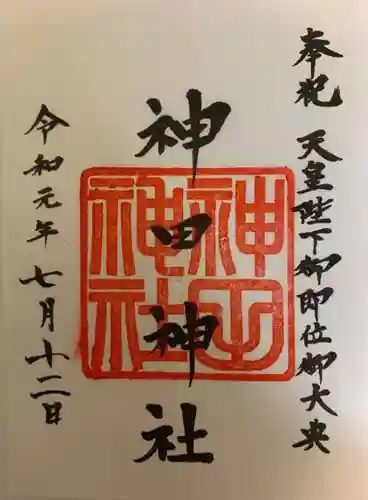 奉祝 天皇陛下御即位御大典
神田神社
令和元年七月十二日